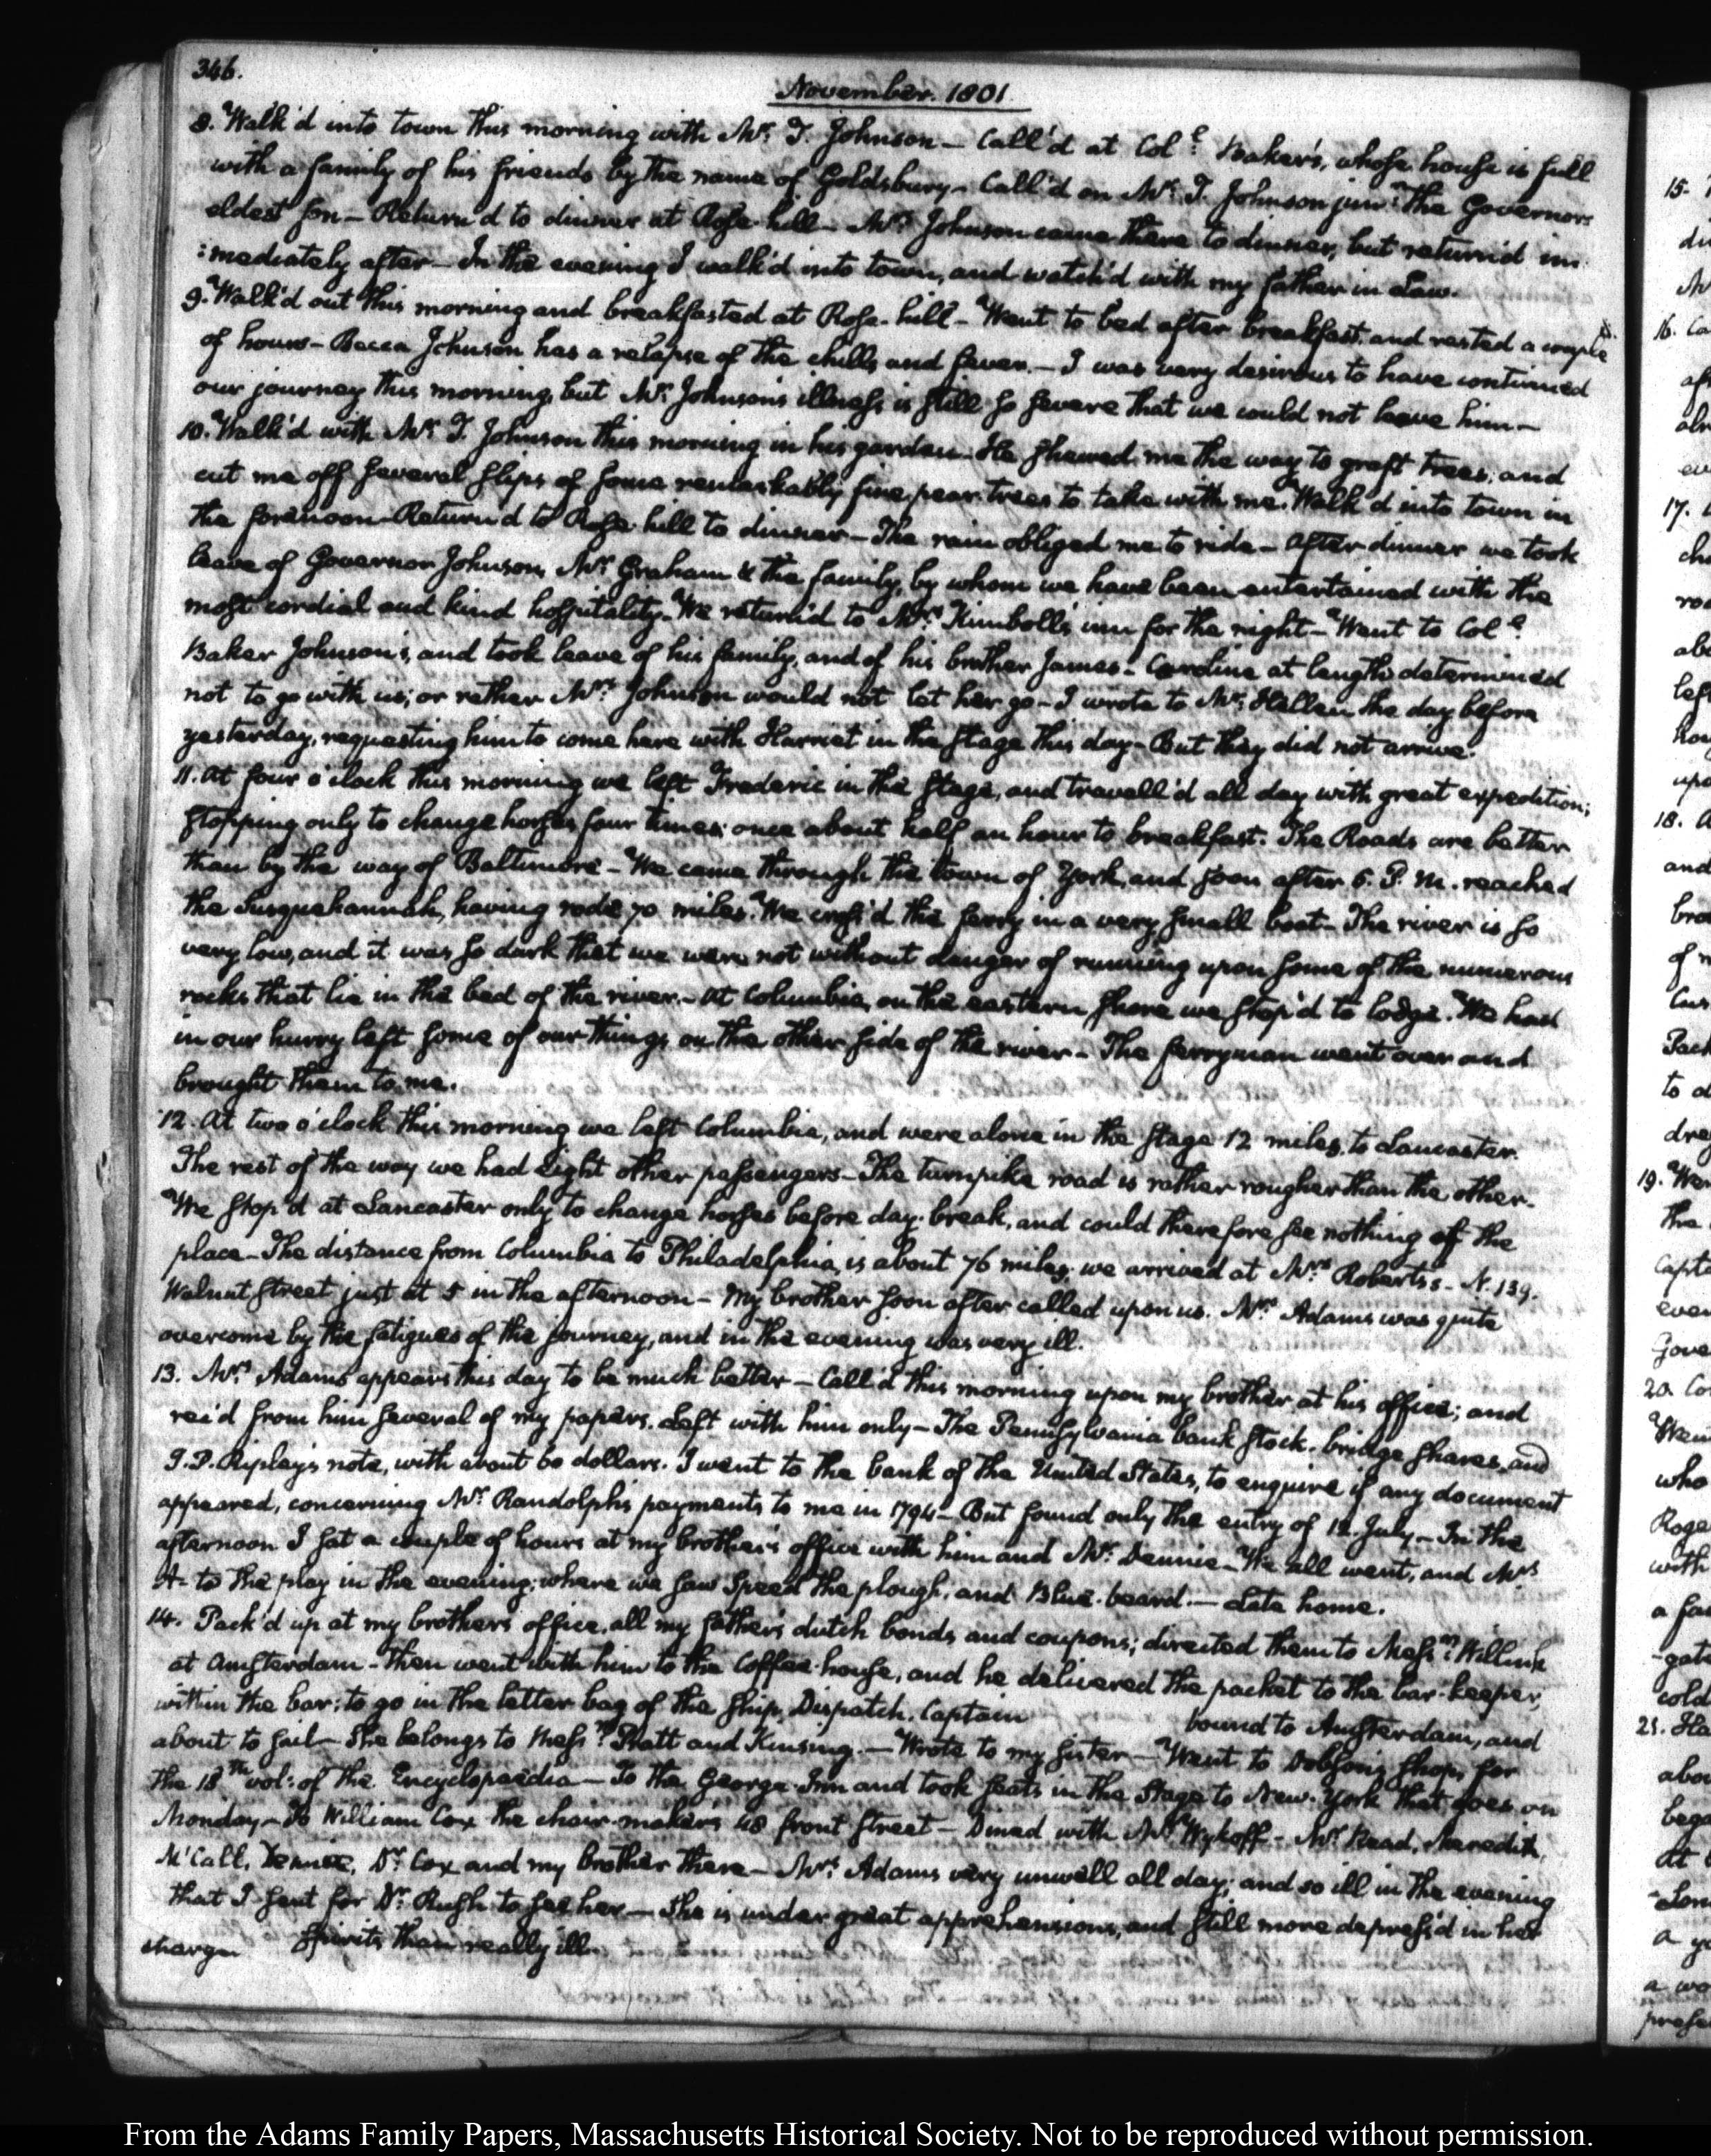 346.
November. 1801.
8. Walk'd into town this morning with Mr. T. Johnson — Call'd at Coll. Baker's, whose house is full
with a family of his friends by the name of Goldsbury — Call'd on Mr. T. Johnson junr. the Governors
eldest son — Return'd to dinner at Rose-hill — Mrs. Johnson came there to dinner, but return'd im:
:mediately after — In the evening I walk'd into town, and watch'd with my father in Law.
9. Walk'd out this morning and breakfasted at Rose-hill — Went to bed after breakfast, and rested a couple
of hours — Becca Johnson has a relapse of the chills and fever. — I was very desirous to have continued
our journey this morning, but Mr. Johnson's illness is still so severe that we could not leave him —
10. Walk'd with Mr. T. Johnson this morning in his garden — He shewed me the way to graft trees, and
cut me off several slips of some remarkably fine pear trees to take with me. Walk'd into town in
the forenoon — Return'd to Rose-hill to dinner — The rain obliged me to ride — After dinner we took
leave of Governor Johnson, Mrs. Graham & the family, by whom we have been entertained with the
most cordial and kind hospitality — We return'd to Mrs. Kimboll's inn for the night — Went to Coll.
Baker Johnson's, and took leave of his family, and of his brother James — Caroline at length determined
not to go with us; or rather Mrs. Johnson would not let her go — I wrote to Mr. Hellen the day before
yesterday, requesting him to come here with Harriet in the stage this day — But they did not arrive.
11. At four o'clock this morning we left Frederic in the stage, and travell'd all day with great expedition;
stopping only to change horses four times: once about half an hour to breakfast. The Roads are better
than by the way of Baltimore — We came through the town of York, and soon after 6. P. M. reached
the Susquehannah, having rode 70 miles. We cross'd the ferry in a very small boat — The river is so
very low, and it was so dark that we were not without danger of running upon some of the numerous
rocks that lie in the bed of the river. — At Columbia, on the eastern shore we stop'd to lodge. We had
in our hurry left some of our things on the other side of the river — The ferryman went over and
brought them to me.
12. At two o'clock this morning we left Columbia, and were alone in the stage 12 miles, to Lancaster.
The rest of the way we had eight other passengers — The turnpike road is rather rougher than the other.
We stop'd at Lancaster only to change horses before day-break, and could therefore see nothing of the
place — The distance from Columbia to Philadelphia, is about 76 miles; we arrived at Mrs. Roberts's — N. 139.
Walnut Street just at 5 in the afternoon — My brother soon after called upon us. Mrs. Adams was quite
overcome by the fatigues of the journey, and in the evening was very ill.
13. Mrs. Adams appears this day to be much better — Call'd this morning upon my brother at his office; and
rec'd from him several of my papers. Left with him only — The Pennsylvania bank stock, bridge shares, and
J. P. Ripley's note, with about 60 dollars. I went to the bank of the United States, to enquire if any document
appeared, concerning Mr. Randolph's payments to me in 1794 — But found only the entry of 12. July — In the
afternoon I sat a couple of hours at my brother's office with him and Mr. Dennie — We all went, and Mrs.
A— to the play in the evening; where we saw Speed the plough, and Blue-beard. — Late home.
14. Pack'd up at my brother's office, all my father's dutch bonds and coupons; directed them to Messrs. Willink
at Amsterdam — Then went with him to the Coffee-house, and he delivered the packet to the bar-keeper,
within the bar; to go in the letter bag of the ship, Dispatch. Captain bound to Amsterdam, and
about to sail — She belongs to Messrs. Pratt and Kinsing. — Wrote to my sister — Went to Dobson's shop, for
the 18th. vol: of the Encyclopaedia — To the George-Inn and took seats in the Stage to New-York that goes on
Monday — To William Cox the chair-maker's 48 front street — Dined with Mr. Wykoff — Mr. Read, Meredith,
McCall, Dennie, Dr. Cox and my brother there — Mrs. Adams very unwell all day; and so ill in the evening
that I sent for Dr. Rush to see her — She is under great apprehensions, and still more depress'd in her
charge spirits than really ill.
15.
16. Ca
17.
18. A
and
bro
of
Pack
to d
dre
19. Wen
the
Capt
even
Gove
20. Co
Wen
who
Roge
with
a fa
gat
cold
21. Ha
abo
bega
at
a
a wo
prese
From the Adams Family Papers, Massachusetts Historical Society. Not to be reproduced without permission.